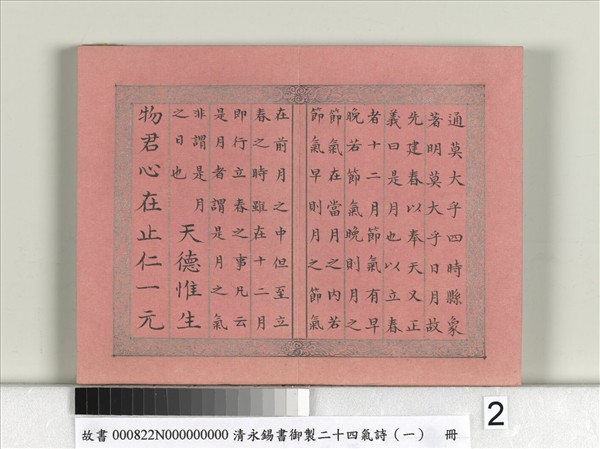 通莫大乎四時縣象
著明莫大乎日月故
先建春以奉天又正
義曰是月也以立春
者十二月節氣有早
晚若節氣晚則月之
節氣在當月之内若
節氣早則月之節氣
在前月之中但至立
春之時雖在十二月
即行立春之事凡云
是月者謂是月之氣
非謂是月
之日也
天德惟生
物君心在止仁一元
2
故書 000822N000000000 清永錫書御製二十四氣詩（一） 冊